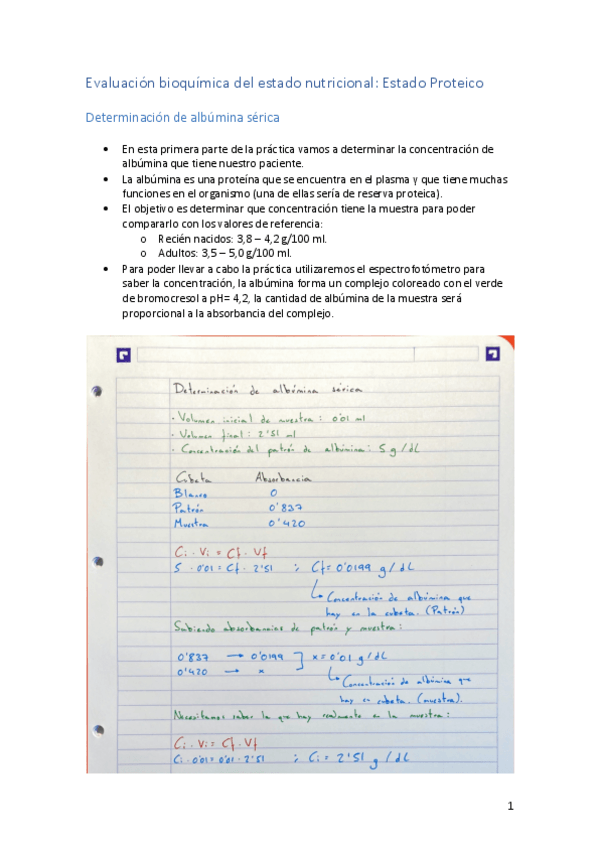 Evaluación bioquímica del estado nutricional: Estado Proteico
Determinación de albúmina sérica
• En esta primera parte de la práctica vamos a determinar la concentración de
albúmina que tiene nuestro paciente.
• La albúmina es una proteína que se encuentra en el plasma y que tiene muchas
funciones en el organismo (una de ellas sería de reserva proteica).
• El objetivo es determinar que concentración tiene la muestra para poder
compararlo con los valores de referencia:
o Recién nacidos: 3,8 – 4,2 g/100 ml.
o Adultos: 3,5 – 5,0 g/100 ml.
• Para poder llevar a cabo la práctica utilizaremos el espectrofotómetro para
saber la concentración, la albúmina forma un complejo coloreado con el verde
de bromocresol a pH= 4,2, la cantidad de albúmina de la muestra será
proporcional a la absorbancia del complejo.
Determinación de albúmina sérica
- Volumen inicial de muestra: 0'01 ml
- Volumen final: 2'51 ml
- Concentración del patrón de albúmina: 5 g/dL
Cubeta Absorbancia
Blanco 0
Patrón 0'837
Muestra 0'420
Ci · Vi = Cf · Vf
5 · 0'01 = Cf · 2'51 ; Cf = 0'0199 g/dL
Concentración de albúmina que
hay en la cubeta. (Patrón)
Sabiendo absorbancias de patrón y muestra:
0'837 → 0'0199
0'420 → x
x = 0'01 g/dL
Concentración de albúmina que
hay en cubeta. (muestra).
Necesitamos saber la que hay realmente en la muestra:
Ci · Vi = Cf · Vf
Ci · 0'01 = 0'01 · 2'51 ; Ci = 2'51 g/dL
1